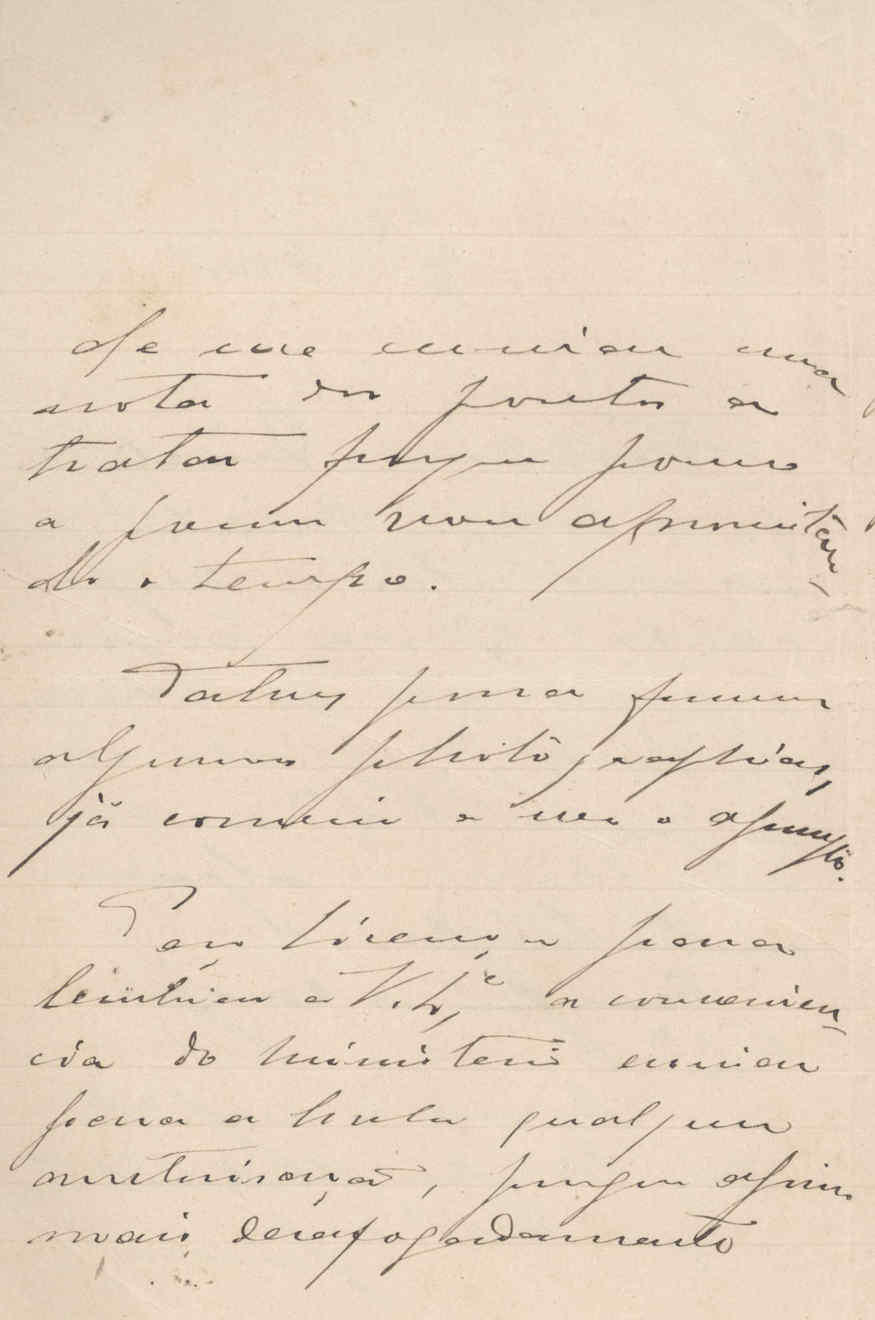 de me enviar uma
nota dos pontos a
tratar porque pouco
a pouco vou aproveitan-
do o tempo.
Talvez possa fazer
algumas photographias,
já comecei a ver o assumpto.
Peço licença para
lembrar a V. Ex.ª a convenien-
cia do ministerio enviar
para a hula qualquer
authorisação, porque assim
mais desafogadamente